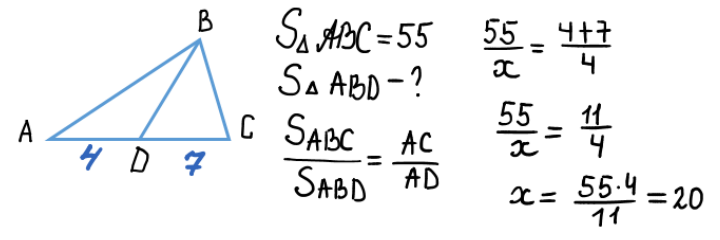 B
A
C
4
D
7
S△ ABC = 55
S△ ABD - ?
S_ABC / S_ABD = AC / AD
55 / x = 4+7 / 4
55 / x = 11 / 4
x = 55·4 / 11 = 20